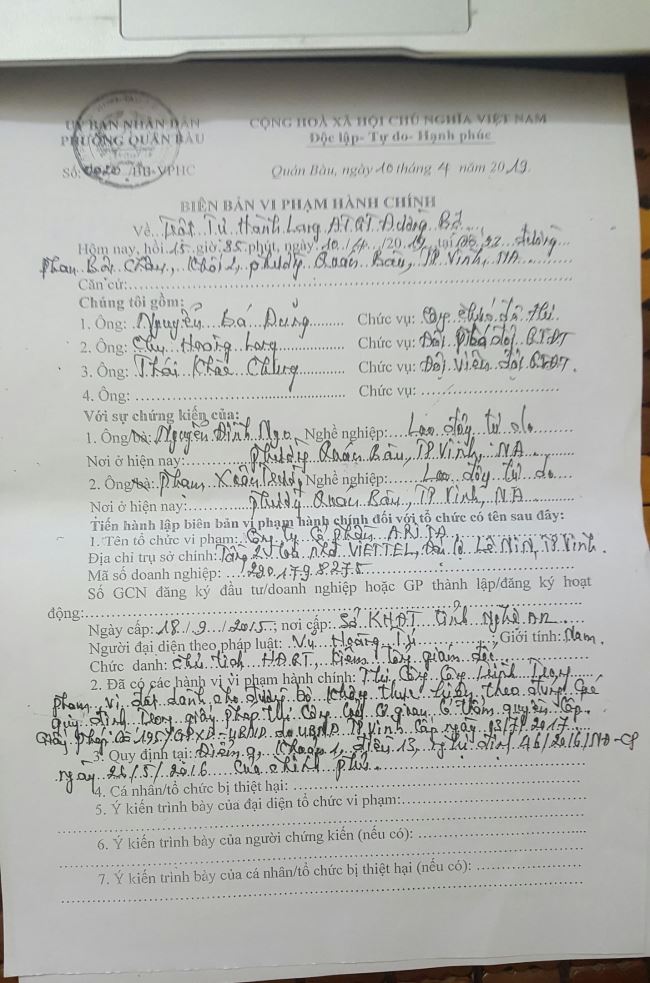 UỶ BAN NHÂN DÂN CỘNG HOÀ XÃ HỘI CHỦ NGHĨA VIỆT NAM
PHƯỜNG QUÁN BÀU Độc lập- Tự do- Hạnh phúc
Số: /BB-VPHC Quán Bàu, ngày 10 tháng 4 năm 2019
BIÊN BẢN VI PHẠM HÀNH CHÍNH
Về Trật Tự Hành Lang ATGT Đường Bộ
Hôm nay, hồi 15 giờ 35 phút, ngày 10/4/2019, tại đường
Phan Bội Châu, Khối 2, phường Quán Bàu, TP Vinh, NA
Căn cứ:
Chúng tôi gồm:
1. Ông: Nguyễn Bá Dũng Chức vụ: đô thị
2. Ông: Chu Hoàng Long Chức vụ: Đội phó đội QTĐT
3. Ông: Thái Khắc Chung Chức vụ: Đội viên đội QTĐT
4. Ông: Chức vụ:
Với sự chứng kiến của:
1. Ông/bà: Nguyễn Đình Nga Nghề nghiệp: Lao động tự do
Nơi ở hiện nay: Phường Quán Bàu, TP Vinh, NA
2. Ông/bà: Phạm Xuân Nghề nghiệp: Lao động tự do
Nơi ở hiện nay: Phường Quán Bàu, TP Vinh, NA
Tiến hành lập biên bản vi phạm hành chính đối với tổ chức có tên sau đây:
1. Tên tổ chức vi phạm: Công ty Cổ phần ARITA
Địa chỉ trụ sở chính: Tầng 2 tòa nhà VIETTEL, Đại lộ Lê Nin, TP Vinh
Mã số doanh nghiệp: 2901798275
Số GCN đăng ký đầu tư/doanh nghiệp hoặc GP thành lập/đăng ký hoạt
động:
Ngày cấp: 18/9/2015; nơi cấp: Sở KHĐT tỉnh Nghệ An
Người đại diện theo pháp luật: Vũ Hoàng Giới tính: Nam
Chức danh: Chủ tịch HĐQT, kiêm tổng giám đốc
2. Đã có các hành vi vi phạm hành chính: Thi công công trình trong
phạm vi đất dành cho đường bộ không thực hiện theo đúng các
quy định trong giấy phép thi công của cơ quan có thẩm quyền cấp
Giấy phép số 195/GPXD-UBND do UBND TP Vinh cấp ngày 13/7/2017
3. Quy định tại: Điểm a, Khoản 1, điều 13, nghị định 46/2016/NĐ-CP
ngày 26/5/2016 của chính phủ
4. Cá nhân/tổ chức bị thiệt hại:
5. Ý kiến trình bày của đại diện tổ chức vi phạm:
6. Ý kiến trình bày của người chứng kiến (nếu có):
7. Ý kiến trình bày của cá nhân/tổ chức bị thiệt hại (nếu có):